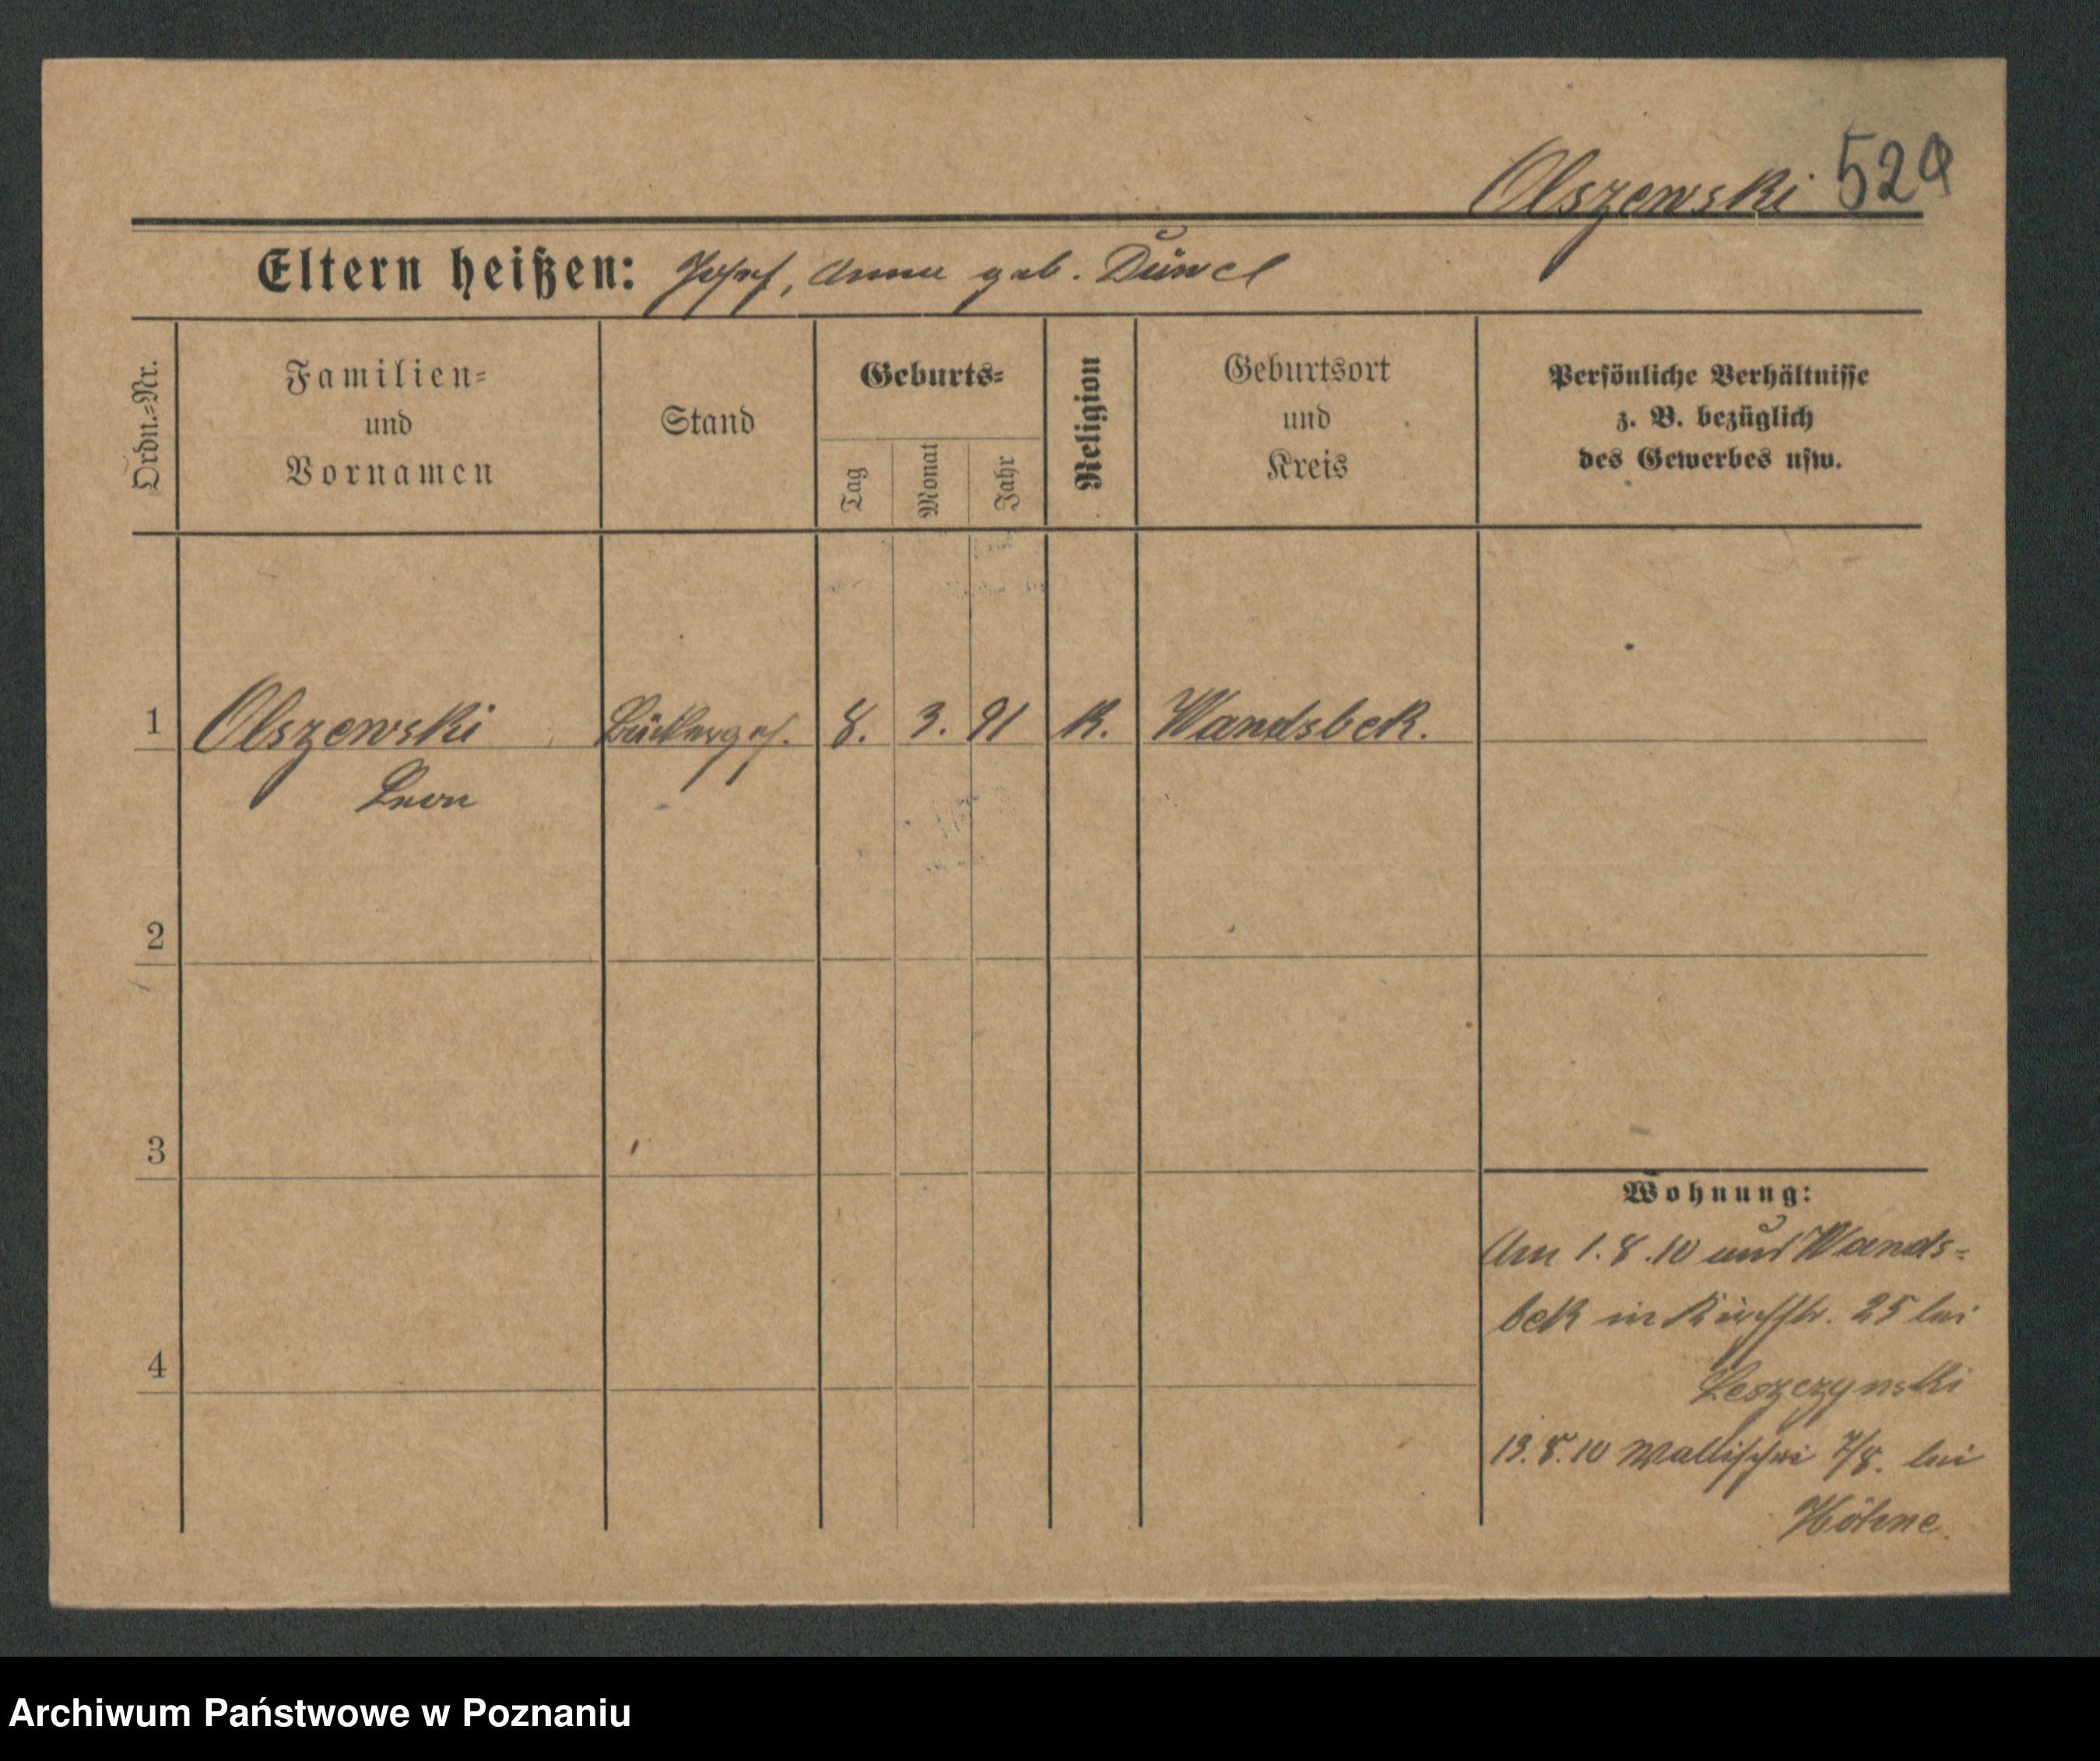 Olszewski 529
Eltern heißen: Josef, Anna geb. Düwel
Ordn.=Nr.
Familien=
und
Vornamen
Stand
Geburts=
Tag
Monat
Jahr
Religion
Geburtsort
und
Kreis
Persönliche Verhältnisse
z. B. bezüglich
des Gewerbes usw.
1 Olszewski Bäckerges. 8. 3. 91 K. Wandsbek.
Leon
2
3
4
Wohnung:
Am 1.8.10 aus Wands=
bek in 25 bei
Leszczynski
13.8.10 Wallischei 7/8. bei
Höhne.
Archiwum Państwowe w Poznaniu